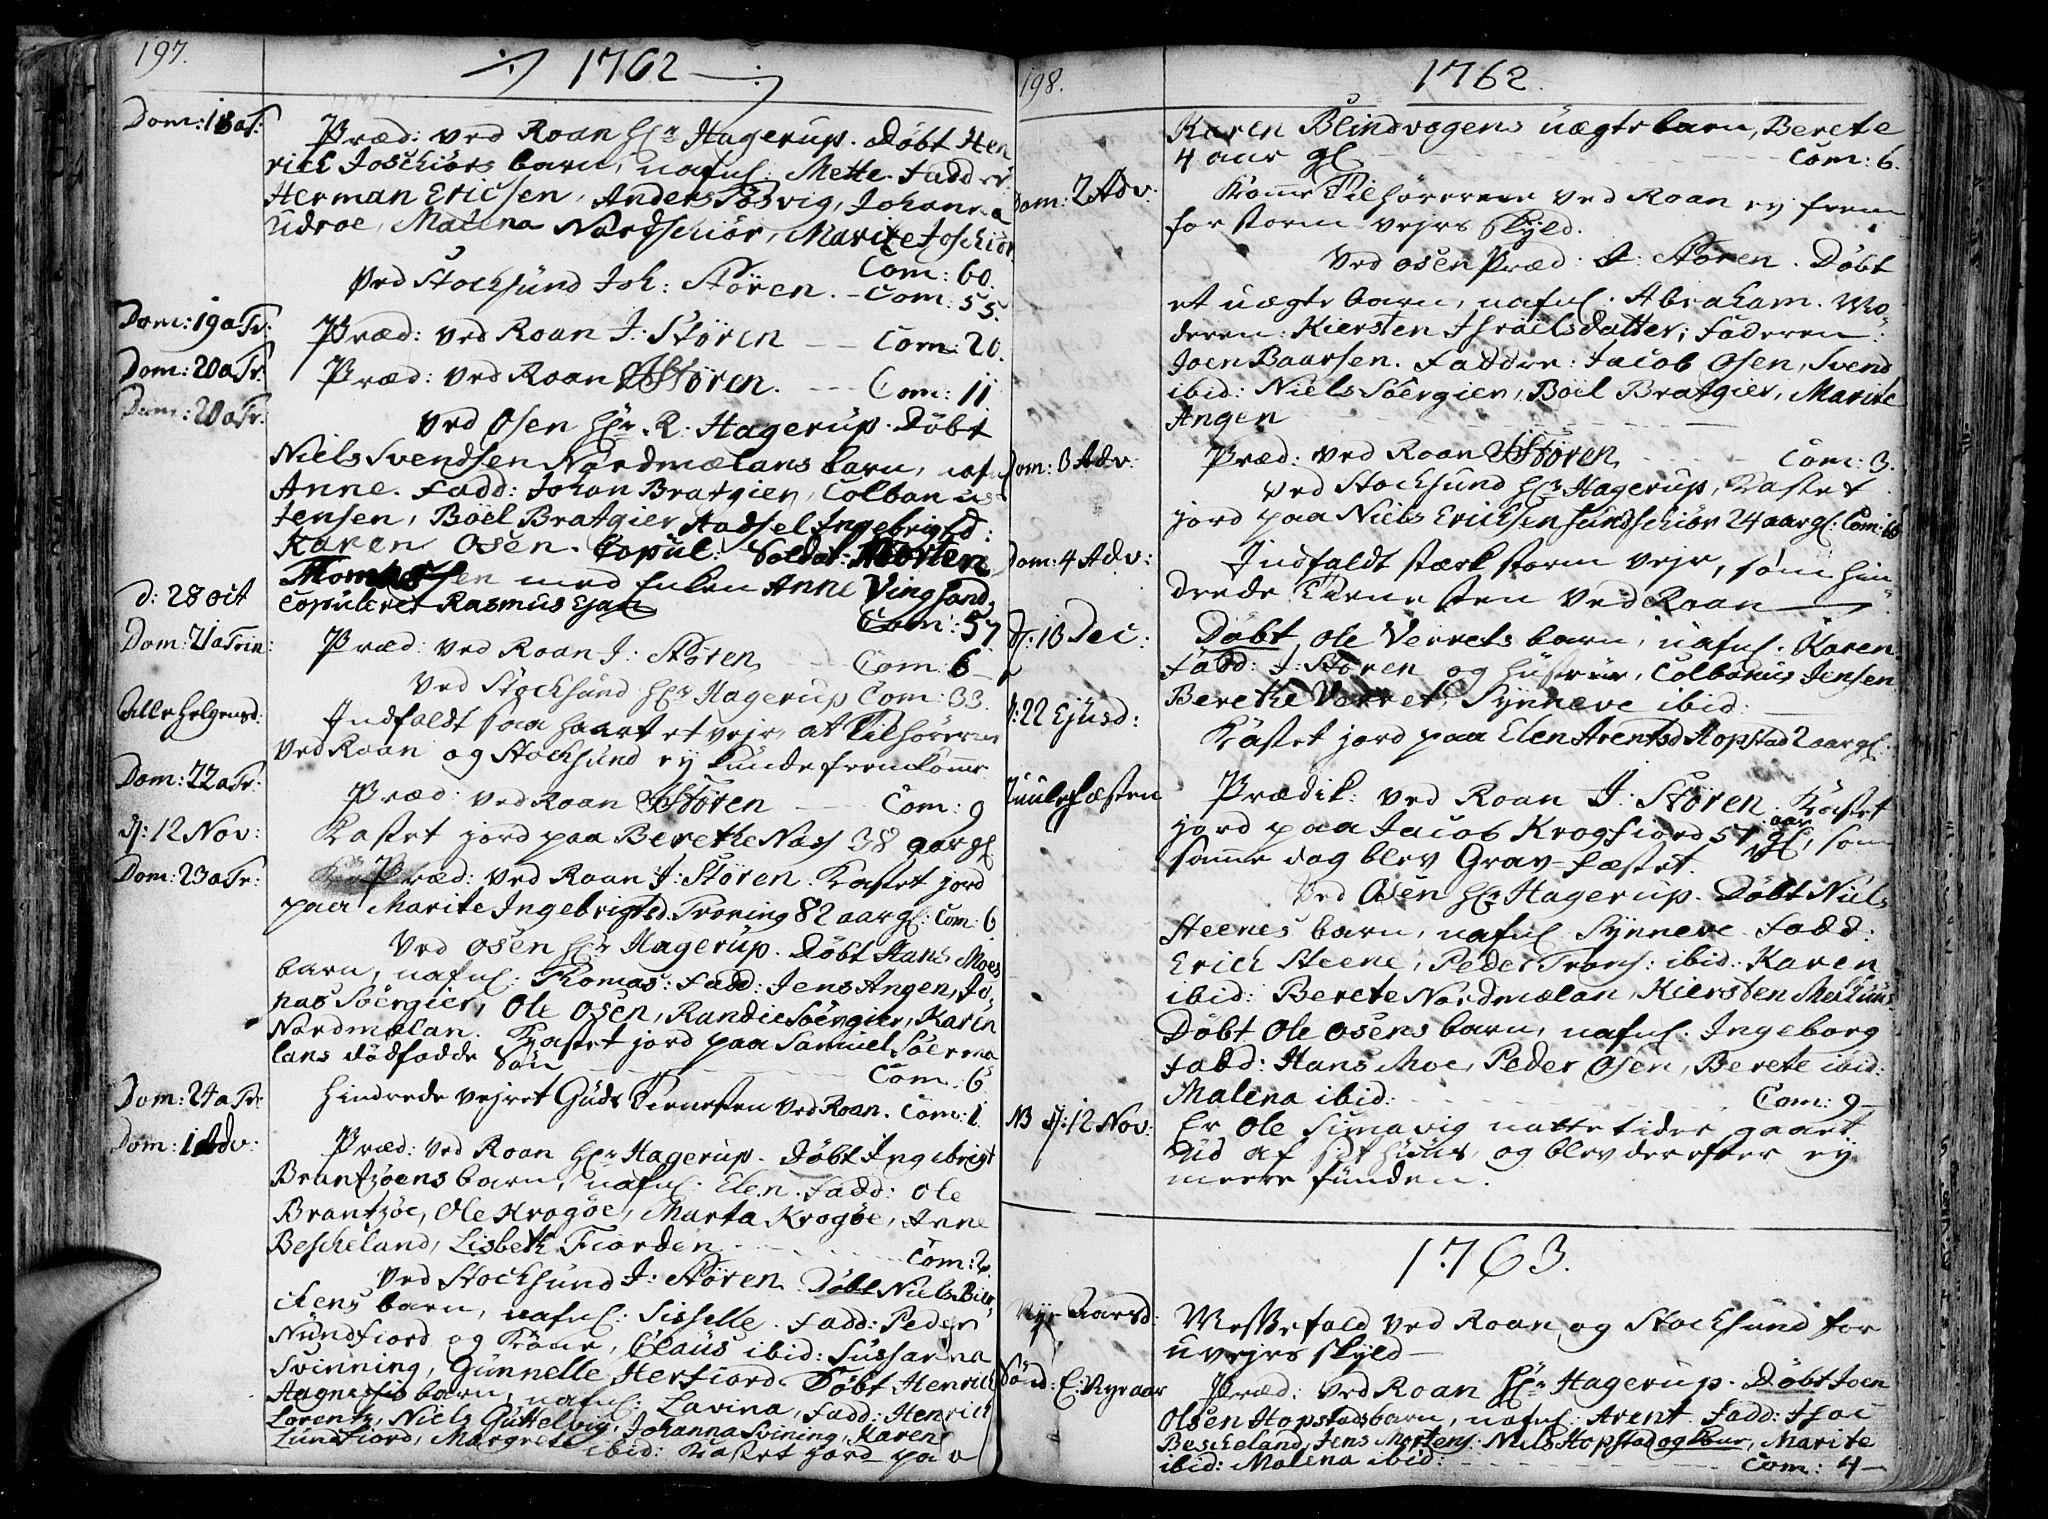 197.
1762
Dom: 18 a Tr:
Præd: ved Roan Hr Hagerup. Døbt Hen
rich Joschiørs barn, nafnl: Mette. Fadd
Herman Ericsen, Anders Posvig, Johanna
Udroe, Malena Nordschiør, Marite Joschiør
Com: 60.
Ved Stocksund Joh: Støren. – Com: 55.
Dom: 19 a Tr:
Præd: ved Roan J: Støren – – Com: 20.
Dom: 20 a Tr:
Præd: ved Roan JStøren. – – – Com: 11
Dom: 20 a Tr:
Ved Osen Hr R: Hagerup. Døbt
Niels Svendsen Nordmælans barn, nafnl
Anne. Fadd: Johan Bratgier, Colbanus
Jensen, Böel Bratgier, Aadsel Ingebrigtsd:
Karen Osen. Copul: Soldat Morten
Thomesen med Enken Anne Vingsand.
D: 28 oct
Copuleret Rasmus Ejan
Com: 57
Dom: 21 a Trin:
Præd: ved Roan J: Støren, – Com: 6
Ved Stocksund Hr Hagerup Com: 33.
Alle Helgensd:
Indfaldt saa haart et vejr, at Tilhørerne
ved Roan og Stocksund ey kunde fremkomme.
Dom: 22 a Tr:
Præd: ved Roan JStøren – – – Com: 9
D: 12 Nov:
Kastet jord paa Berethe Næss 38 aar gl
Dom: 23 a Tr:
Præd: ved Roan J: Støren. Kastet jord
paa Marite Ingebrigtsd Troning 82 aar gl: Com: 6
Ved Osen Hr Hagerup. Døbt Hans Moes
barn, nafnl: Thomas: Fadd: Jens Angen, Jo-
nas Söergier, Ole Osen, Randie Söergier, Karen
Nordmælan. Kastet jord paa Samuel Söermæ
lans dødfødde Søn
Com: 6
Dom: 24 a Tr:
Hindrede vejret Guds Tienesten ved Roan. Com: 1
Dom: 1 Adv:
Præd: ved Roan Hr Hagerup. Døbt Ingebrigt
Brantzøens barn, nafnl: Elen. Fadd: Ole
Brantzøe, Ole Krogøe, Marta Krogøe, Anne
Bescheland, Lisbeth Fiorden
Com: 2.
Ved Stocksund J: Støren. Døbt Niels Bier-
chens barn, nafnl: Sisselle. Fadd: Peder
Nundfiord og Kone, Claus ibid: Sussanna
Svinning, Gunnelle Herfiord. Døbt Henrich
barn, nafnl: Lavina, Fadd: Henrich
Lorentz, Niels Guttelvig, Johanna Svining, Karen
Lundfiord, Margrete ibid: Kastet jord paa
198.
1762.
Karen Blindvogens uægte barn, Berete
4 aar gl. – – – Com: 6.
Dom: 2 Adv:
Komme Tilhørerne ved Roan ey frem
for storm vejrs skyld.
Ved Osen Præd: J: Støren. Døbt
et uægte barn, nafnl. Abraham. Mo
deren: Kiersten Israelsdatter; Faderen:
Joen Baarsen. Faddre: Jacob Osen, Svend
ibid: Niels Söergien, Böel Bratgier, Marite
Angen
Dom: 3 Adv:
Præd: ved Roan JStøren, – – – Com: 3.
Ved Stocksund Hr Hagerup, Kastet
jord paa Niels Ericksen Sundschiør 24 aar gl: Com: 16
Dom: 4 Adv:
Indfaldt stærk storm vejr, som hin
drede Tienesten ved Roan
D: 18 Dec:
Døbt Ole Verrets barn, nafnl. Karen.
Fadd: J: Støren og Hustrue, Colbanus Jensen
Berethe Verret, Synneve ibid:
D: 22 Ejusd:
Kastet jord paa Elen Arentsd Hopstad 2 aar gl:
Juulefæsten
Prædik: ved Roan J: Støren. Kastet
jord paa Jacob Krogfiord 57 aar gl, som
samme dag blev Grav-fæstet.
Ved Osen Hr Hagerup. Døbt Niels
Steenes barn, nafnl Synneve. Fadd:
Erich Steene, Peder Trons: ibid: Karen
ibid: Berete Nordmælan, Kiersten Melhuus
Døbt Ole Osens barn, nafnl. Ingeborg
Fadd: Hans Moe, Peder Osen, Berete ibid:
Malena ibid: – – – Com: 9 –
NB D: 12 Nov:
Er Ole Simavig nattetider gaaet
ud af sit Huus, og blev derefter ey
meere funden.
1763.
Nye Aarsd:
Messefald ved Roan og Stocksund for
uvejrs skyld –
Sønd: E: Nyeaar
Præd: ved Roan Hr Hagerup. Døbt Joen
Olsen Hopstads barn, nafnl: Arent. Fadd: Isac
Bescheland, Jens Mortens: Niels Hopstad og , Marite
ibid: Malena ibid: – – – Com: 4 –